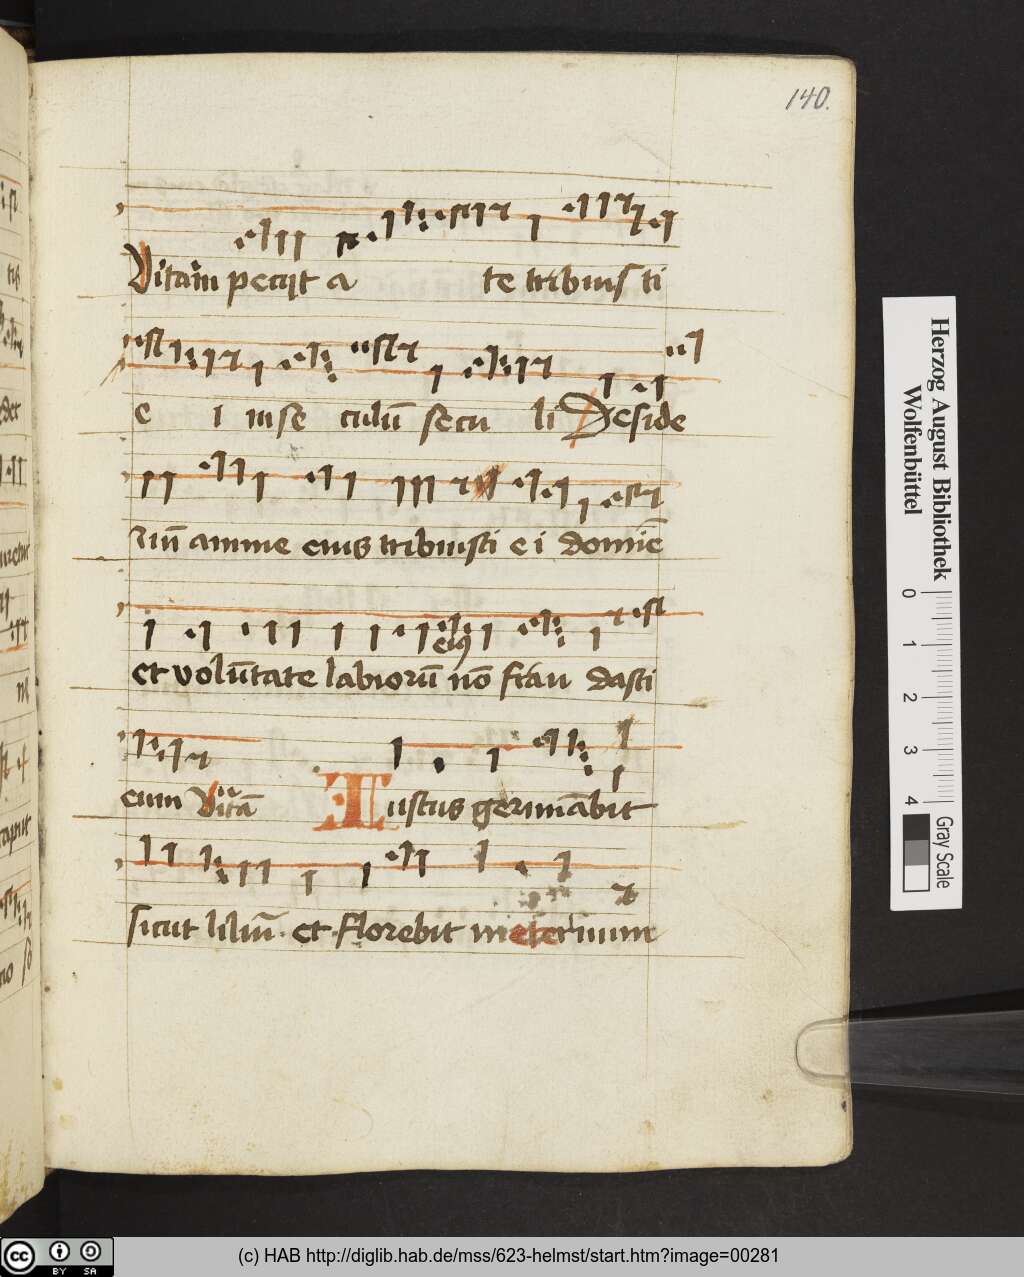 140.
Vitam peciit a te tribuisti
e i in se culū secu li Deside
riū anime eius tribuisti ei domīe
eius
et volūtate labiorū nō frau dasti
eum Vitā Iustus germīabit
sicut liliū et florebit in eternum
Herzog August Bibliothek
Wolfenbüttel
0 1 2 3 4
Gray Scale
cc BY SA
(c) HAB http://diglib.hab.de/mss/623-helmst/start.htm?image=00281